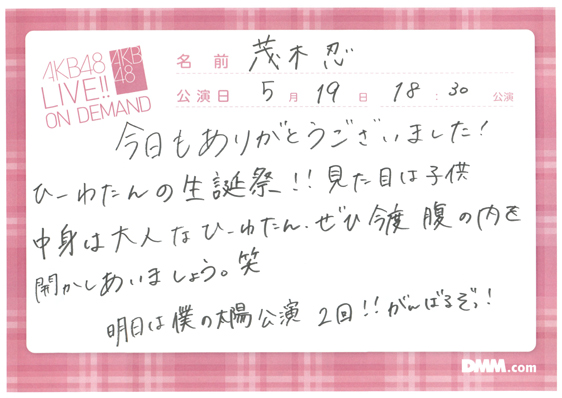 AKB48
LIVE!!
ON DEMAND
AKB
48
名前 茂木忍
公演日 5月19日 18:30 公演
今日もありがとうございました!
ひーわたんの生誕祭!!見た目は子供
中身は大人なひーわたん、ぜひ今度腹の内を
開かしあいましょう。笑
明日は僕の太陽公演 2回!!がんばるぞっ!
DMM.com